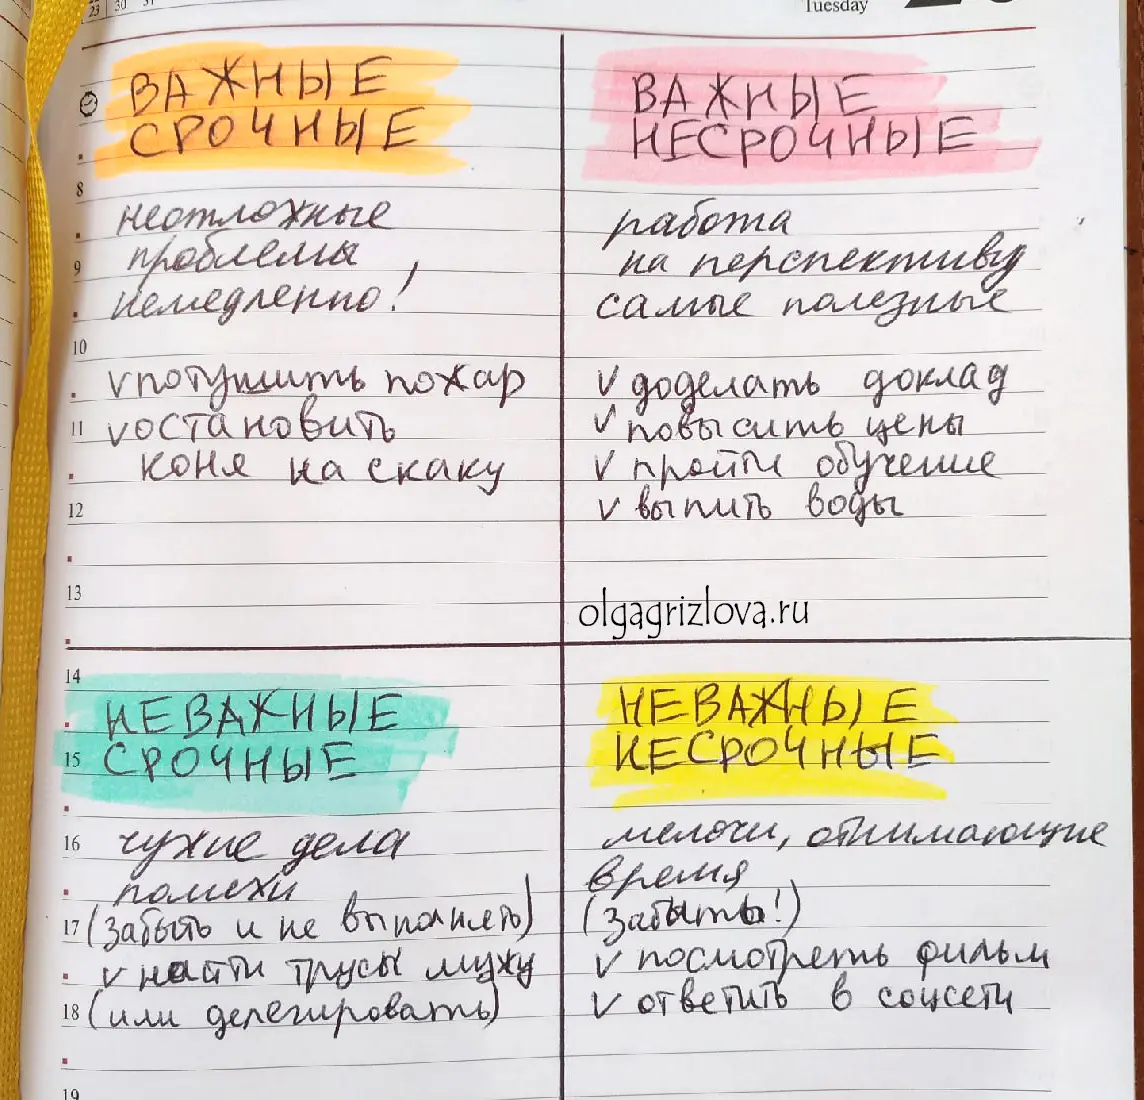 23 30 31
Tuesday
ВАЖНЫЕ
СРОЧНЫЕ
8
неотложные
проблемы
9
немедленно!
10
v потушить пожар
11 v остановить
коня на скаку
12
13
ВАЖНЫЕ
НЕСРОЧНЫЕ
работа
на перспективу
самые полезные
v доделать доклад
v повысить цены
v пройти обучение
v выпить воды
olgagrizlova.ru
14
НЕВАЖНЫЕ
15 СРОЧНЫЕ
16 чужие дела
помехи
17 (забыть и не выполнять)
v найти трусы мужу
18 (или делегировать)
19
НЕВАЖНЫЕ
НЕСРОЧНЫЕ
мелочи, отнимающие
время
(забыть!)
v посмотреть фильм
v ответить в соцсети